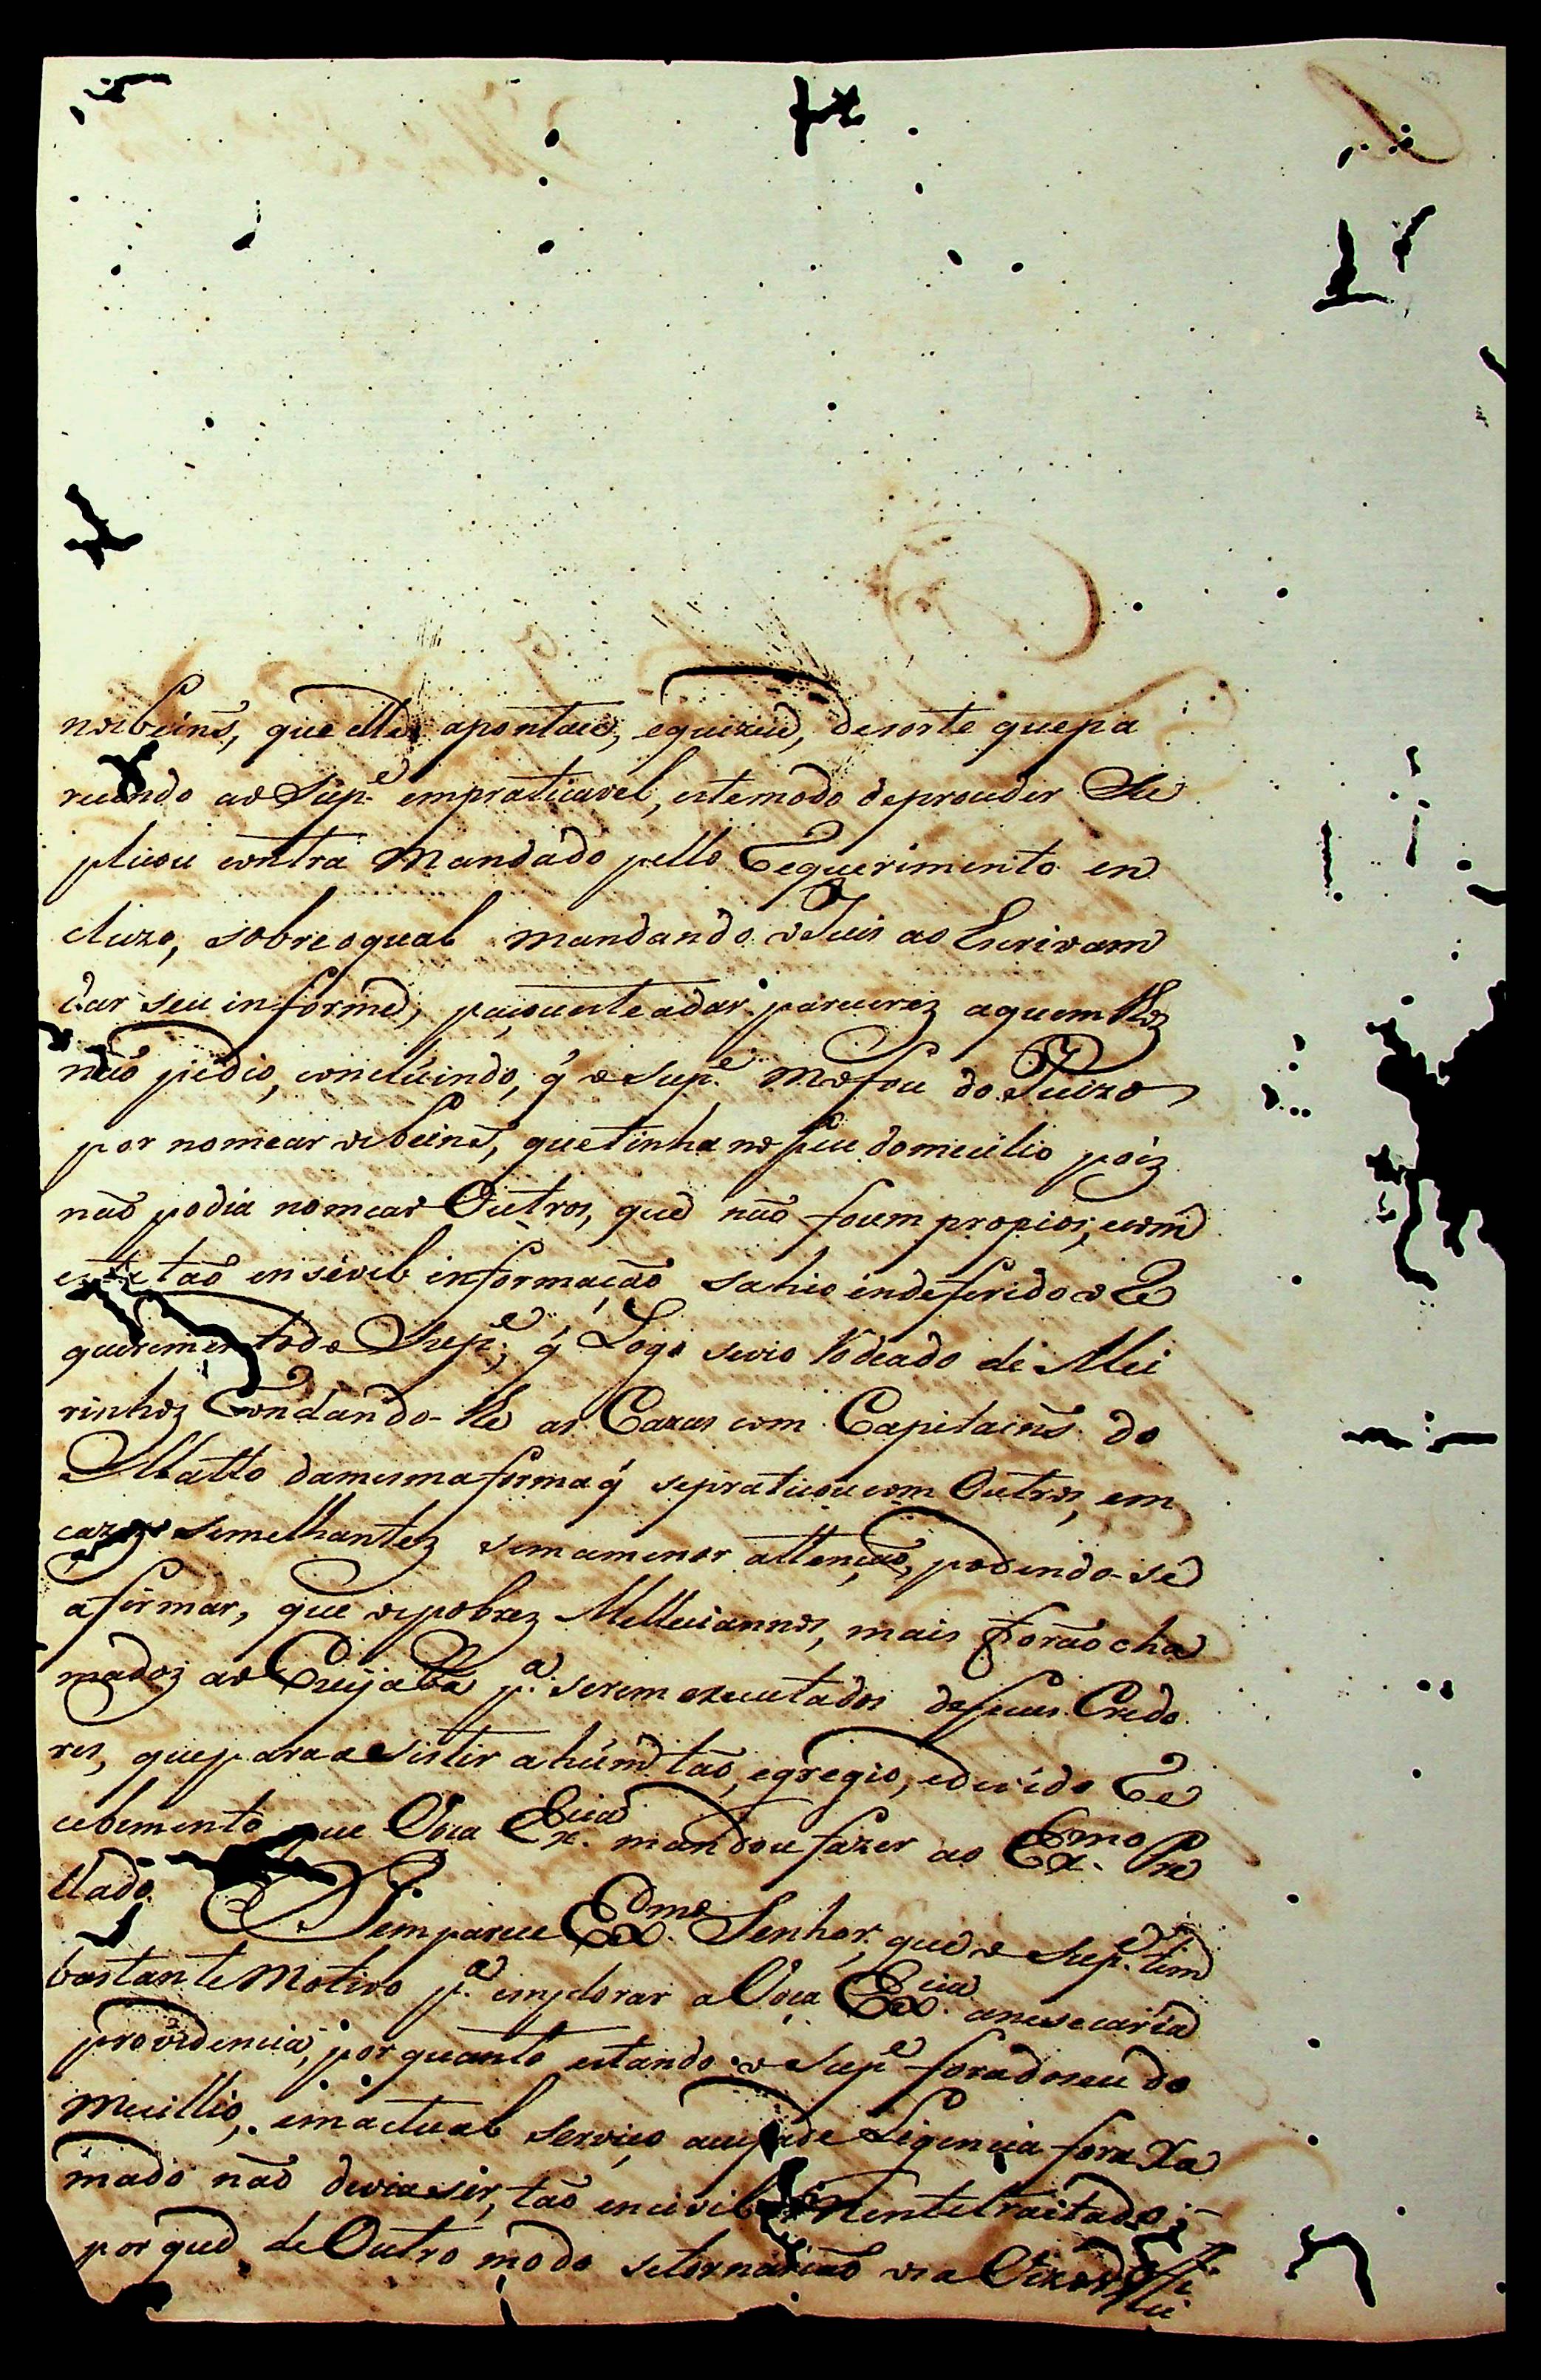 nos beins, que elles apontaeis, e quizeu, de sorte que pa
recendo ao Sup.e empraticavel, este modo de proceder Re
plicou contra Mandado pello Requerimento en
cluzo, sobre o qual mandando o Juis ao Escrivam
dar seu informe, paçou este a dar parecerez a quem lhoz
não pedio, concluindo, q̃ o Sup.e Mofou do Juizo
por nomear os beins, que tinha no seu domicilio poiz
não podia nomear Outros, que não focem propios, com
esta tão insevel informação sahio indeferido o Re
querimento do Sup.e; q̃ Logo se vio Rodeado de Mei
rinhoz Rondando-lhe as Cazas com Capitains do
Matto da mesma forma q̃ se praticou com Outros, em
cazos semelhantez sem a menor attenção, podendo-se
afirmar, que os pobrez Milleciannos, mais forão cha
madoz ao Cuijaba p.a serem executados de seus Credo
res, que para a Sistir a hum tão, egregio, e devido Re
cebemento que Voça Ex.cia mandou fazer ao Ex.mo Pre
llado.
Bem parece Ex.mo Senhor, que o Sup.e tem
bastante Motivo p.a emplorar a Voça Ex.cia a nesecaria
providencia, por quanto estando o Sup.e fora do seu do
Micillio, em actual serviço a cuja deLigencia fora Xa
mado não devia ser, tão encivilMente traitado;
por que de Outro modo se tornarião os a